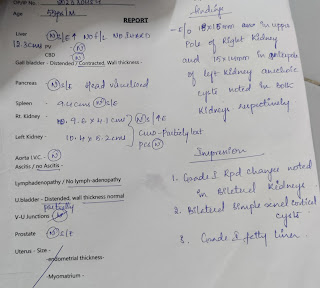 Age 55yrs/M
REPORT
Liver (N) S/E↑ NO S/L NO IHBRD
12.3cms PV
CBD (N)
Gall bladder - Distended / Contracted, Wall thickness -
Pancreas (N) S/E Head visualised
Spleen - 9.4 cms (N) S/E
Rt. Kidney - 9.6 x 4.1 cms (N) S/↑E
Left Kidney - 10.4 x 5.2 cms CMD - Partially lost
PCS (N)
Aorta I.V.C. - (N)
Ascitis / no Ascitis -
Lymphadenopathy / No lymph-adenopathy
U.bladder - Distended, wall thickness normal
partially
V-U Junctions (N)
Prostate (N) S/E
Uterus - Size -
-endometrial thickness-
-Myomatrium -
Findings
- E/O 15x15mm are in upper
Pole of Right Kidney
and 15x14mm in
of left Kidney anechoic
cysts noted in both
Kidneys respectively
Impression
1. Grade I Rpd changes noted
in Bilateral Kidneys
2. Bilateral simple renal cortical
cysts
3. Grade I fatty Liver